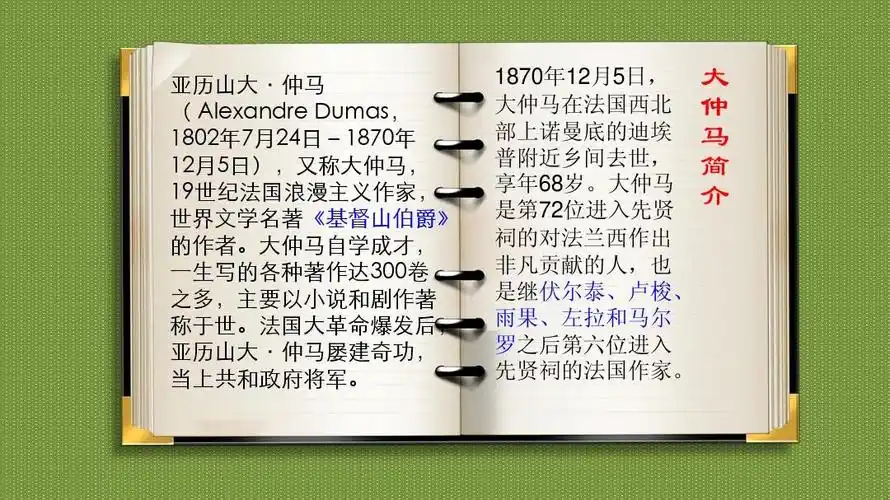 亚历山大·仲马
（Alexandre Dumas，
1802年7月24日－1870年
12月5日），又称大仲马，
19世纪法国浪漫主义作家，
世界文学名著《基督山伯爵》
的作者。大仲马自学成才，
一生写的各种著作达300卷
之多，主要以小说和剧作著
称于世。法国大革命爆发后，
亚历山大·仲马屡建奇功，
当上共和政府将军。
1870年12月5日，
大仲马在法国西北
部上诺曼底的迪埃
普附近乡间去世，
享年68岁。大仲马
是第72位进入先贤
祠的对法兰西作出
非凡贡献的人，也
是继伏尔泰、卢梭、
雨果、左拉和马尔
罗之后第六位进入
先贤祠的法国作家。
大仲马简介